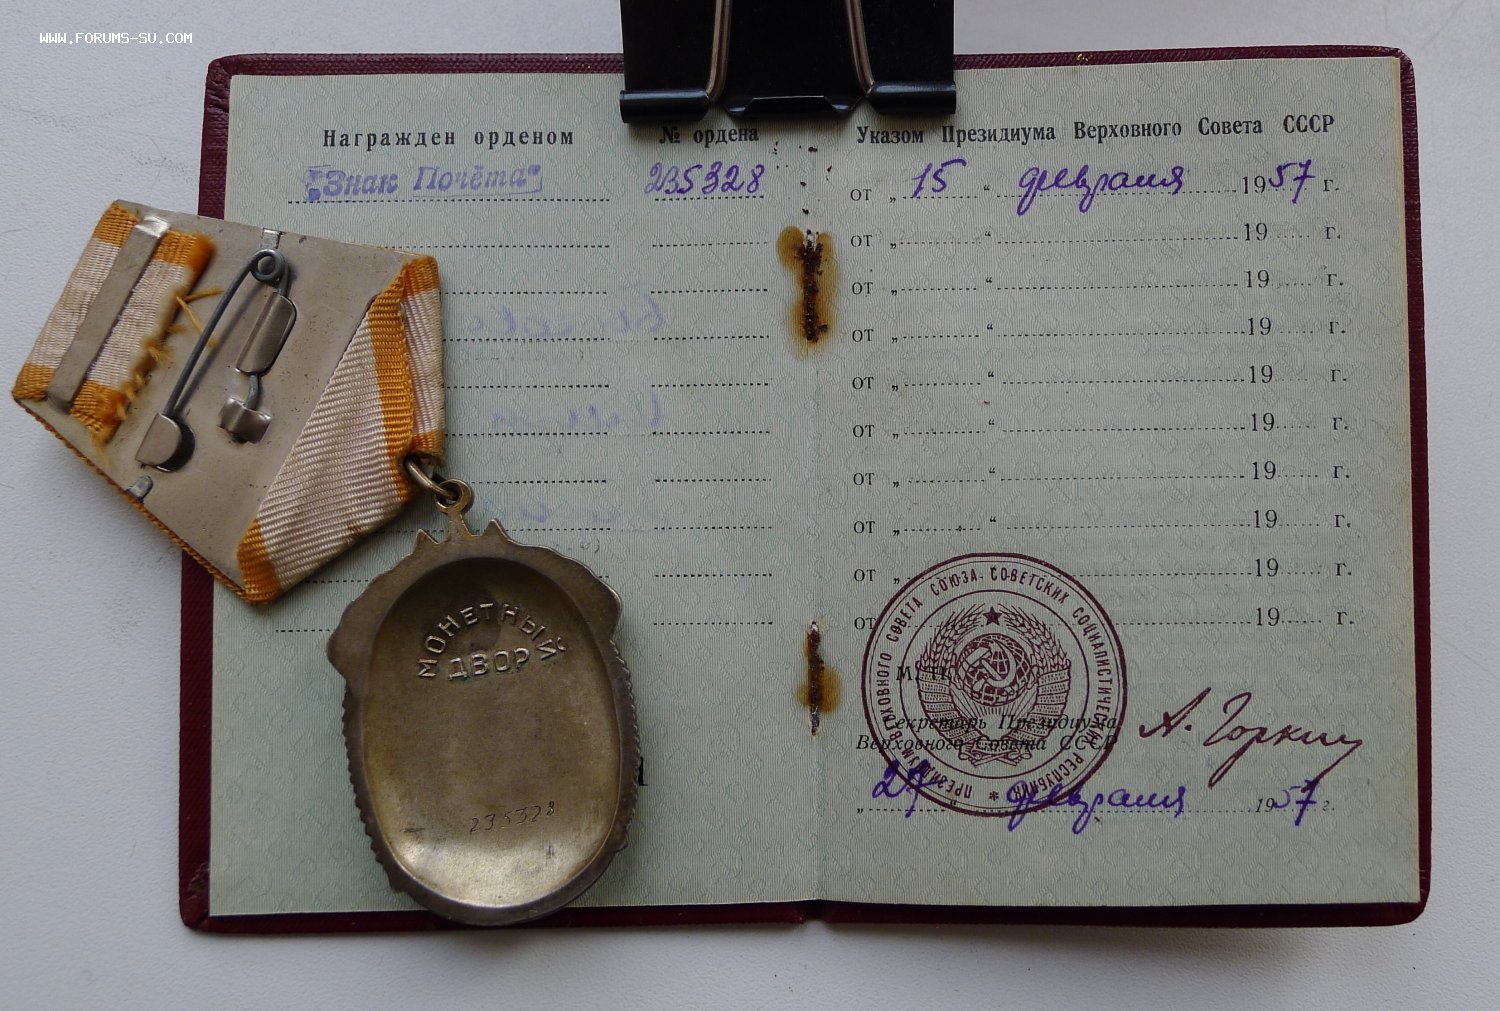 WWW.FORUMS-SU.COM
Награжден орденом № ордена
"Знак Почёта" 235328
Указом Президиума Верховного Совета СССР
от „ 15 “ февраля 1957 г.
от „ “ 19 г.
от „ “ 19 г.
от „ “ 19 г.
от „ “ 19 г.
от „ “ 19 г.
от „ “ 19 г.
от „ “ 19 г.
от „ 19 г.
от 19 г.
М. П.
Секретарь Президиума
Верховного Совета СССР
А. Горкин
„ 27 “ февраля 1957 г.
ПРЕЗИДИУМ ВЕРХОВНОГО СОВЕТА СОЮЗА СОВЕТСКИХ СОЦИАЛИСТИЧЕСКИХ РЕСПУБЛИК *
МОНЕТНЫЙ
ДВОР
235328